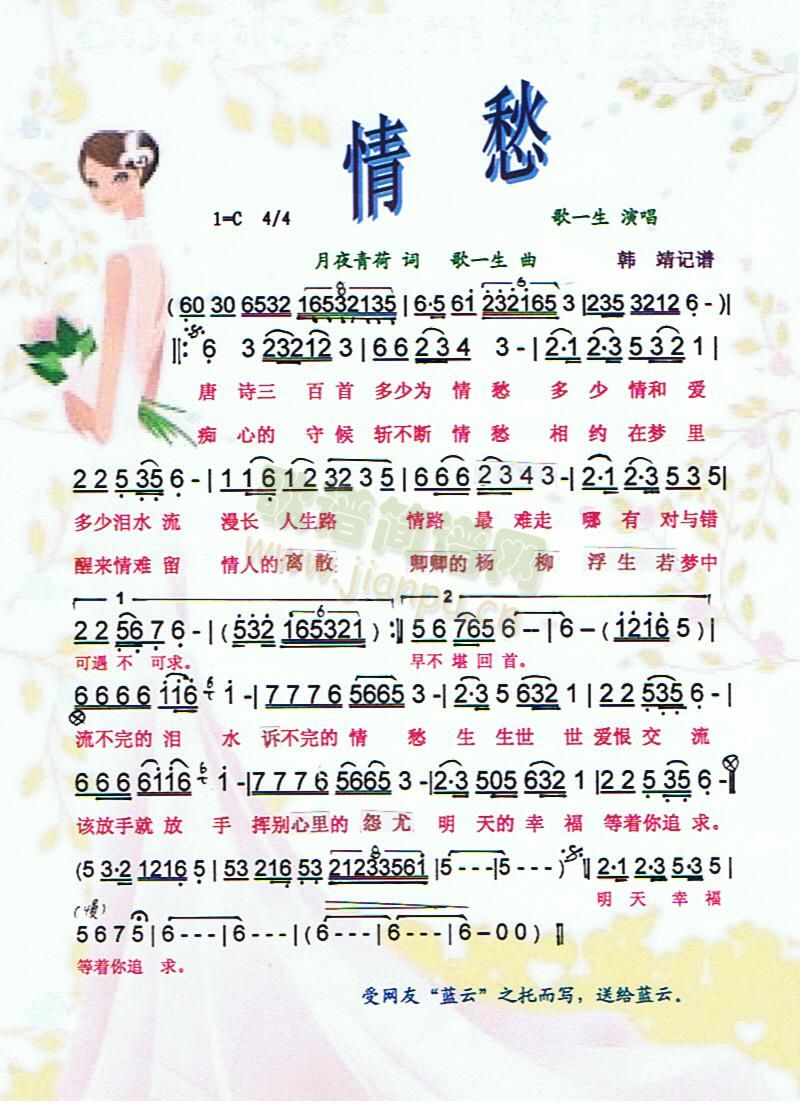 情 愁
1=C 4/4 歌一生 演唱
月夜青荷 词 歌一生 曲 韩 靖记谱
(60 30 6532 16532135 | 6·5 61 232165 3 | 235 3212 6 - )|
‖: 6 3 23212 3 | 6 6 2 3 4 3 - | 2·1 2·3 5 3 2 1 |
唐 诗三 百 首 多少为 情 愁 多 少 情和 爱
痴 心的 守 候 斩不断 情 愁 相 约 在梦 里
2 2 5 35 6 - | 1 1 6 12 323 5 | 6 6 6 2 3 4 3 - | 2·1 2·3 5 3 5 |
多少泪水 流 漫长 人生路 情路 最 难走 哪 有 对与错
醒来情难 留 情人的 离 散 卿卿的 杨 柳 浮 生 若 梦中
1 6 2
2 2 56 7 6 - | ( 532 165321 ) :‖ 5 6 765 6 - - | 6 - ( 1216 5 ) |
可遇 不 可求。 早不 堪 回 首。
6 6 6 6 116 6 1 - | 7 7 7 6 5665 3 - | 2·3 5 632 1 | 2 2 535 6 - |
流不完的 泪 水 诉不完的 情 愁 生 生世 世 爱恨 交 流
6 6 6 6116 6 1 - | 7 7 7 6 5665 3 - | 2·3 505 632 1 | 2 2 5 35 6 - ‖
该放手就 放 手 挥别心里的 怨 尤 明 天的 幸 福 等着你追 求。
(5 3·2 1216 5 | 53 216 53 21233561 | 5 - - - | 5 - - ) ‖ 2·1 2·3 5 3 5 |
明 天 幸 福
(慢)
5 6 7 5 | 6 - - - | 6 - - - | (6 - - - | 6 - - - | 6 - 0 0 ) ‖
等着你追 求。
受网友“蓝云”之托而写，送给蓝云。
www.jianpu.cn